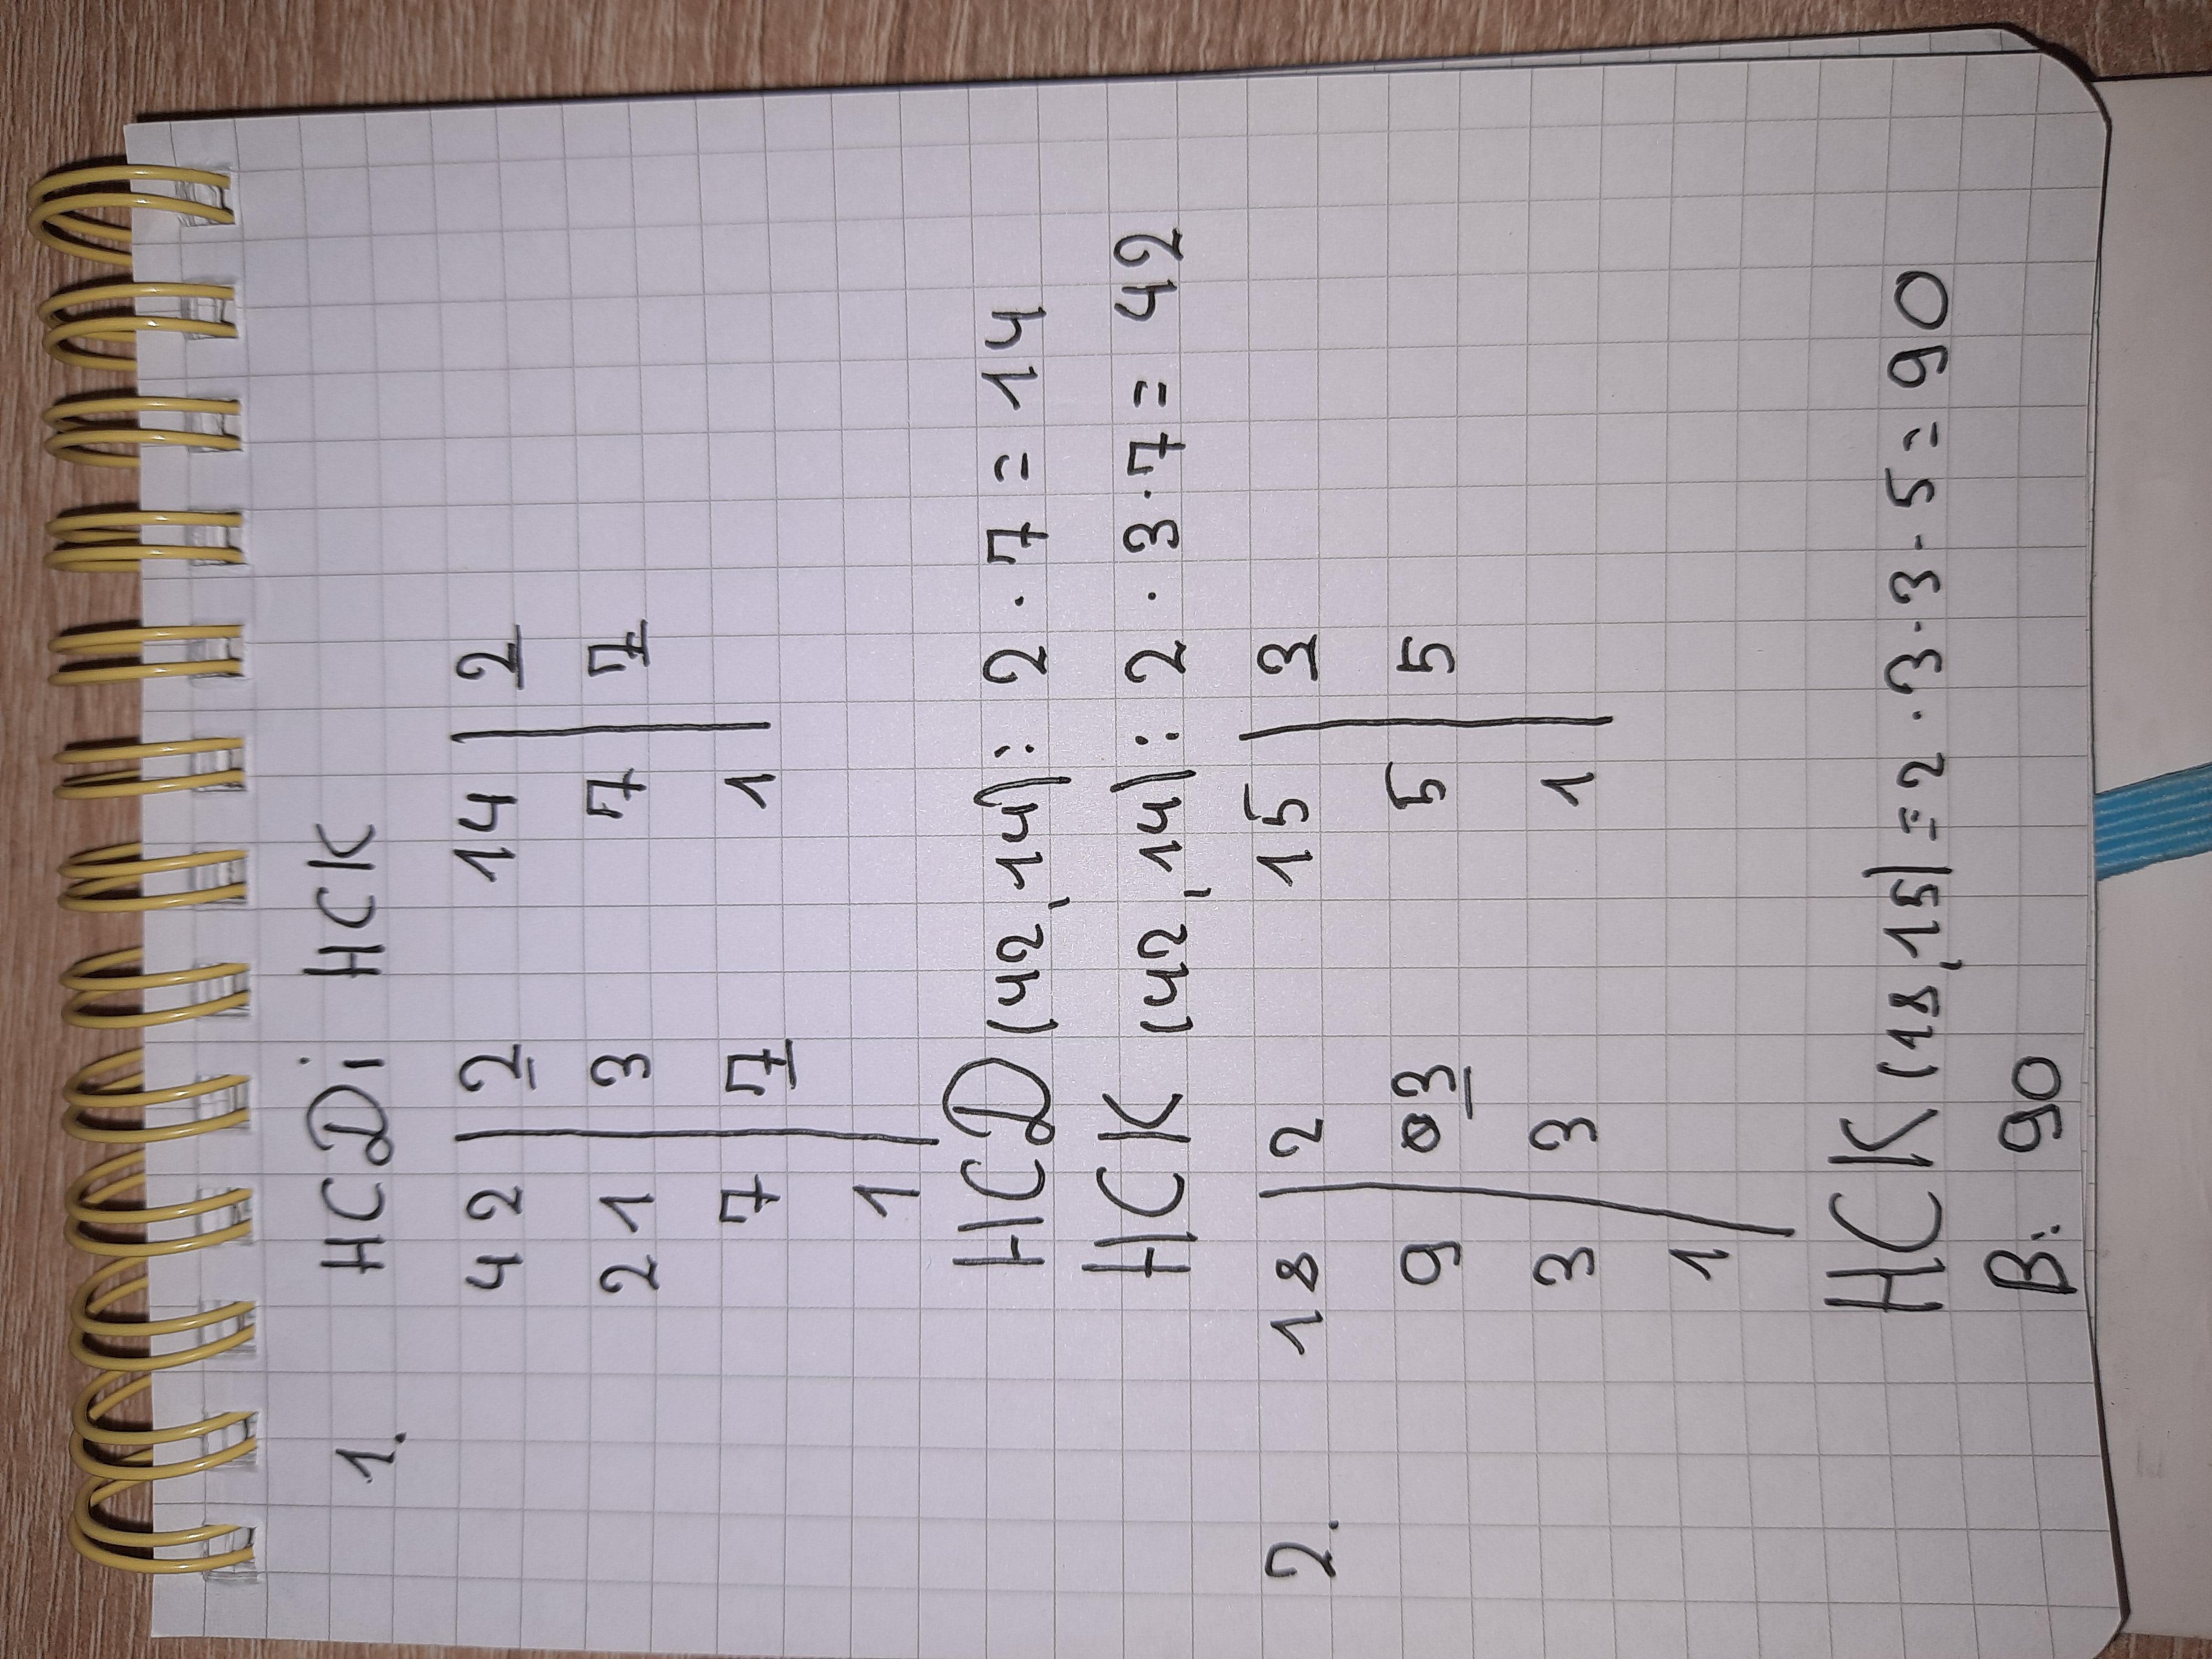 1. НСД і НСК
42 | 2 14 | 2
21 | 3 7 | 7
7 | 7 1
1
НСД (42, 14): 2 · 7 = 14
НСК (42, 14): 2 · 3 · 7 = 42
2. 18 | 2 15 | 3
9 | 3 5 | 5
3 | 3 1
1
НСК (18, 15) = 2 · 3 · 3 · 5 = 90
В: 90